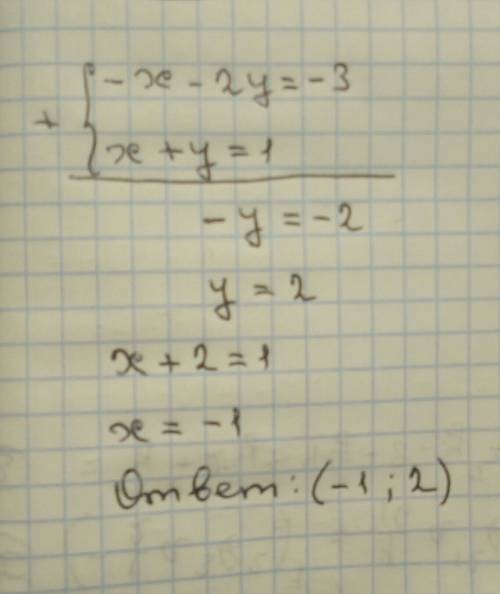 -x - 2y = -3
+ { x + y = 1
-y = -2
y = 2
x + 2 = 1
x = -1
Ответ: (-1; 2)